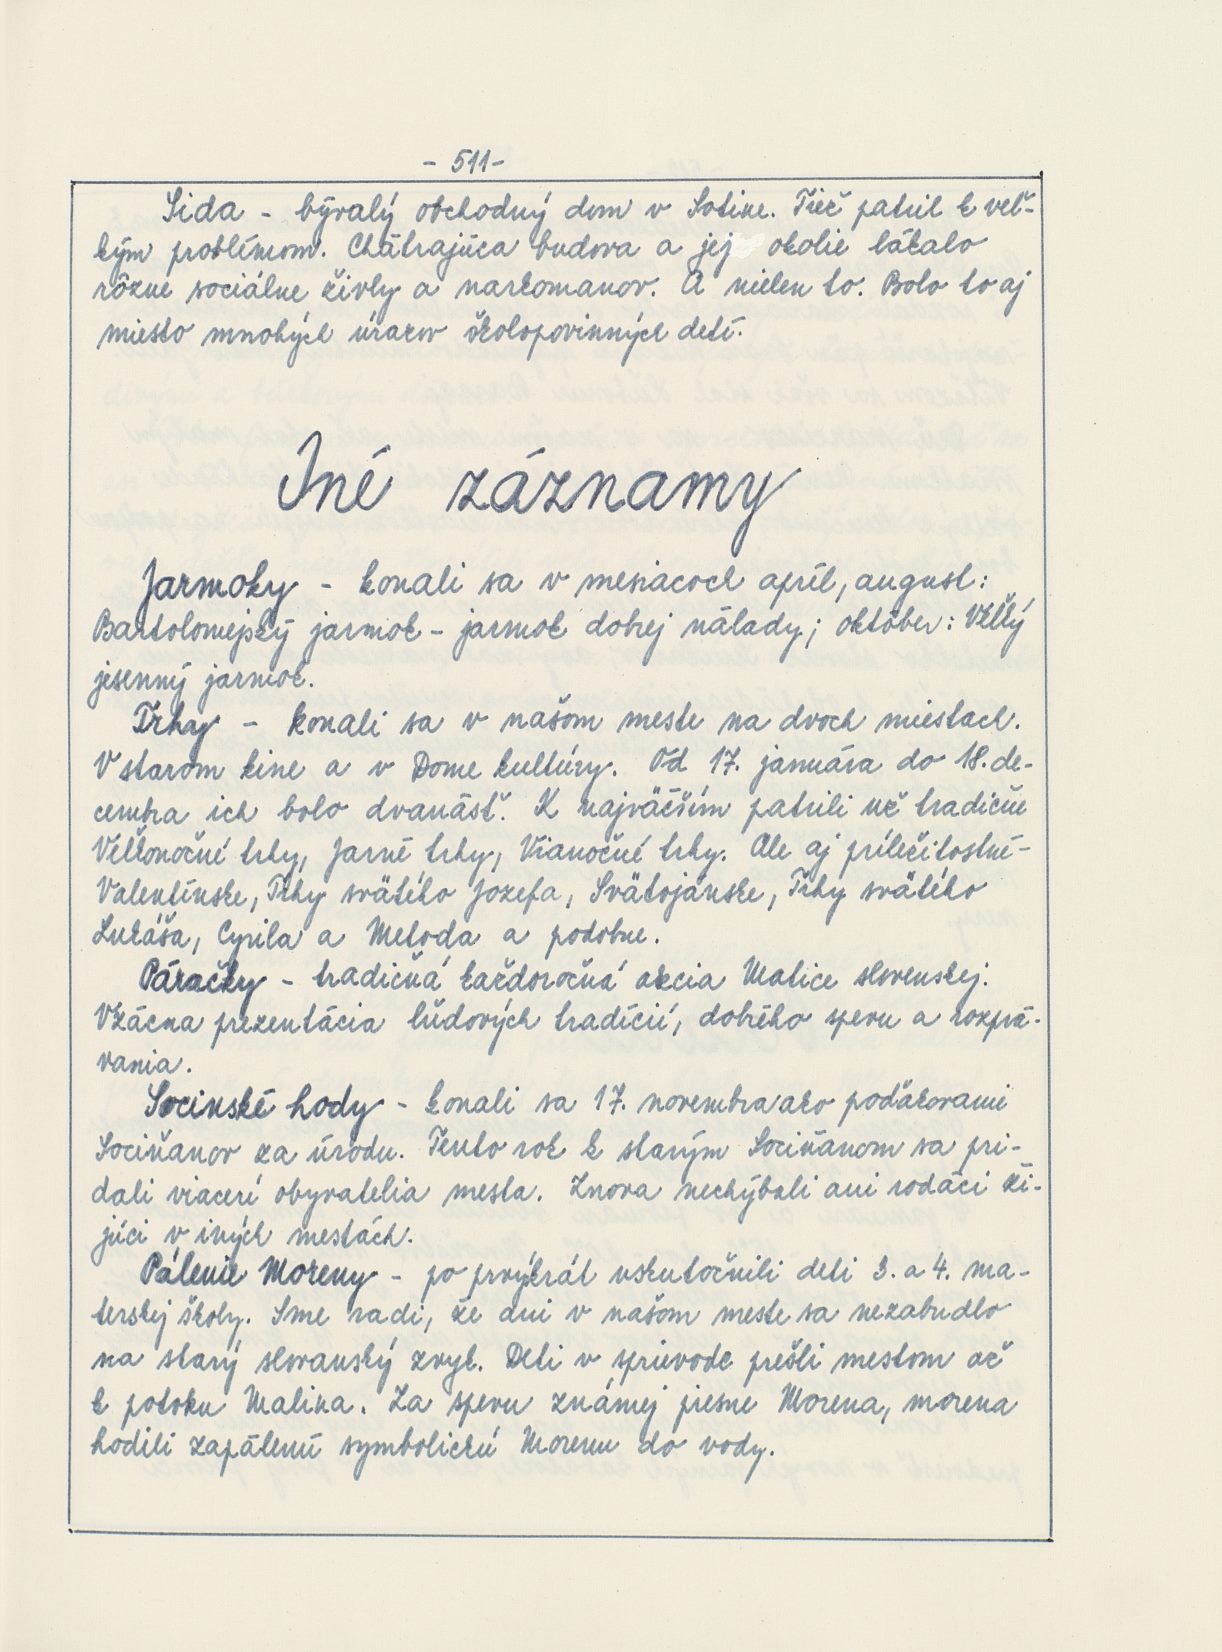 - 511 -
Sida - bývalý obchodný dom v Sotine. Tiež patril k veľ-
kým problémom. Chátrajúca budova a jej okolie lákalo
rôzne sociálne živly a narkomanov. A nielen to. Bolo to aj
miesto mnohých úrazov školopovinných detí.
Iné záznamy
Jarmoky - konali sa v mesiacoch apríl, august:
Bartolomejský jarmok - jarmok dobrej nálady; október: Veľký
jesenný jarmok.
Trhy - konali sa v našom meste na dvoch miestach.
V starom kine a v Dome kultúry. Od 17. januára do 18. de-
cembra ich bolo dvanásť. K najväčším patrili už tradičné
Veľkonočné trhy, Jarné trhy, Vianočné trhy. Ale aj príležitostné -
Valentínske, Trhy svätého Jozefa, Svätojánske, Trhy svätého
Lukáša, Cyrila a Metoda a podobne.
Páračky - tradičná každoročná akcia Matice slovenskej.
Vzácna prezentácia ľudových tradícií, dobrého spevu a rozprá-
vania.
Socinské hody - konali sa 17. novembra ako poďakovanie
Sociňanov za úrodu. Tento rok k starým Sociňanom sa pri-
dali viacerí obyvatelia mesta. Znova nechýbali ani rodáci ži-
júci v iných mestách.
Pálenie Moreny - po prvýkrát uskutočnili deti 3. a 4. ma-
terskej školy. Sme radi, že ani v našom meste sa nezabudlo
na starý slovanský zvyk. Deti v sprievode prešli mestom až
k potoku Malina. Za spevu známej piesne Morena, morena
hodili zapálenú symbolickú Morenu do vody.